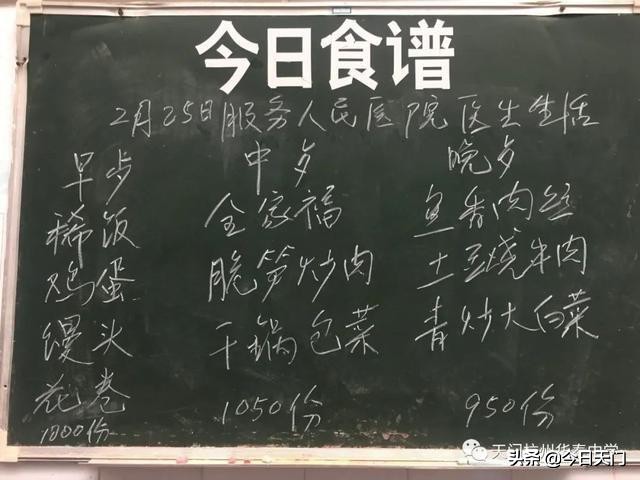 今日食谱
2月25日服务人民医院医生生活
早歺
稀饭
鸡蛋
馒头
花卷
1000份
中歺
全家福
脆笋炒肉
干锅包菜
1050份
晚歺
鱼香肉丝
土豆烧牛肉
青炒大白菜
950份
天门杭州华泰中学
头条 @今日天门